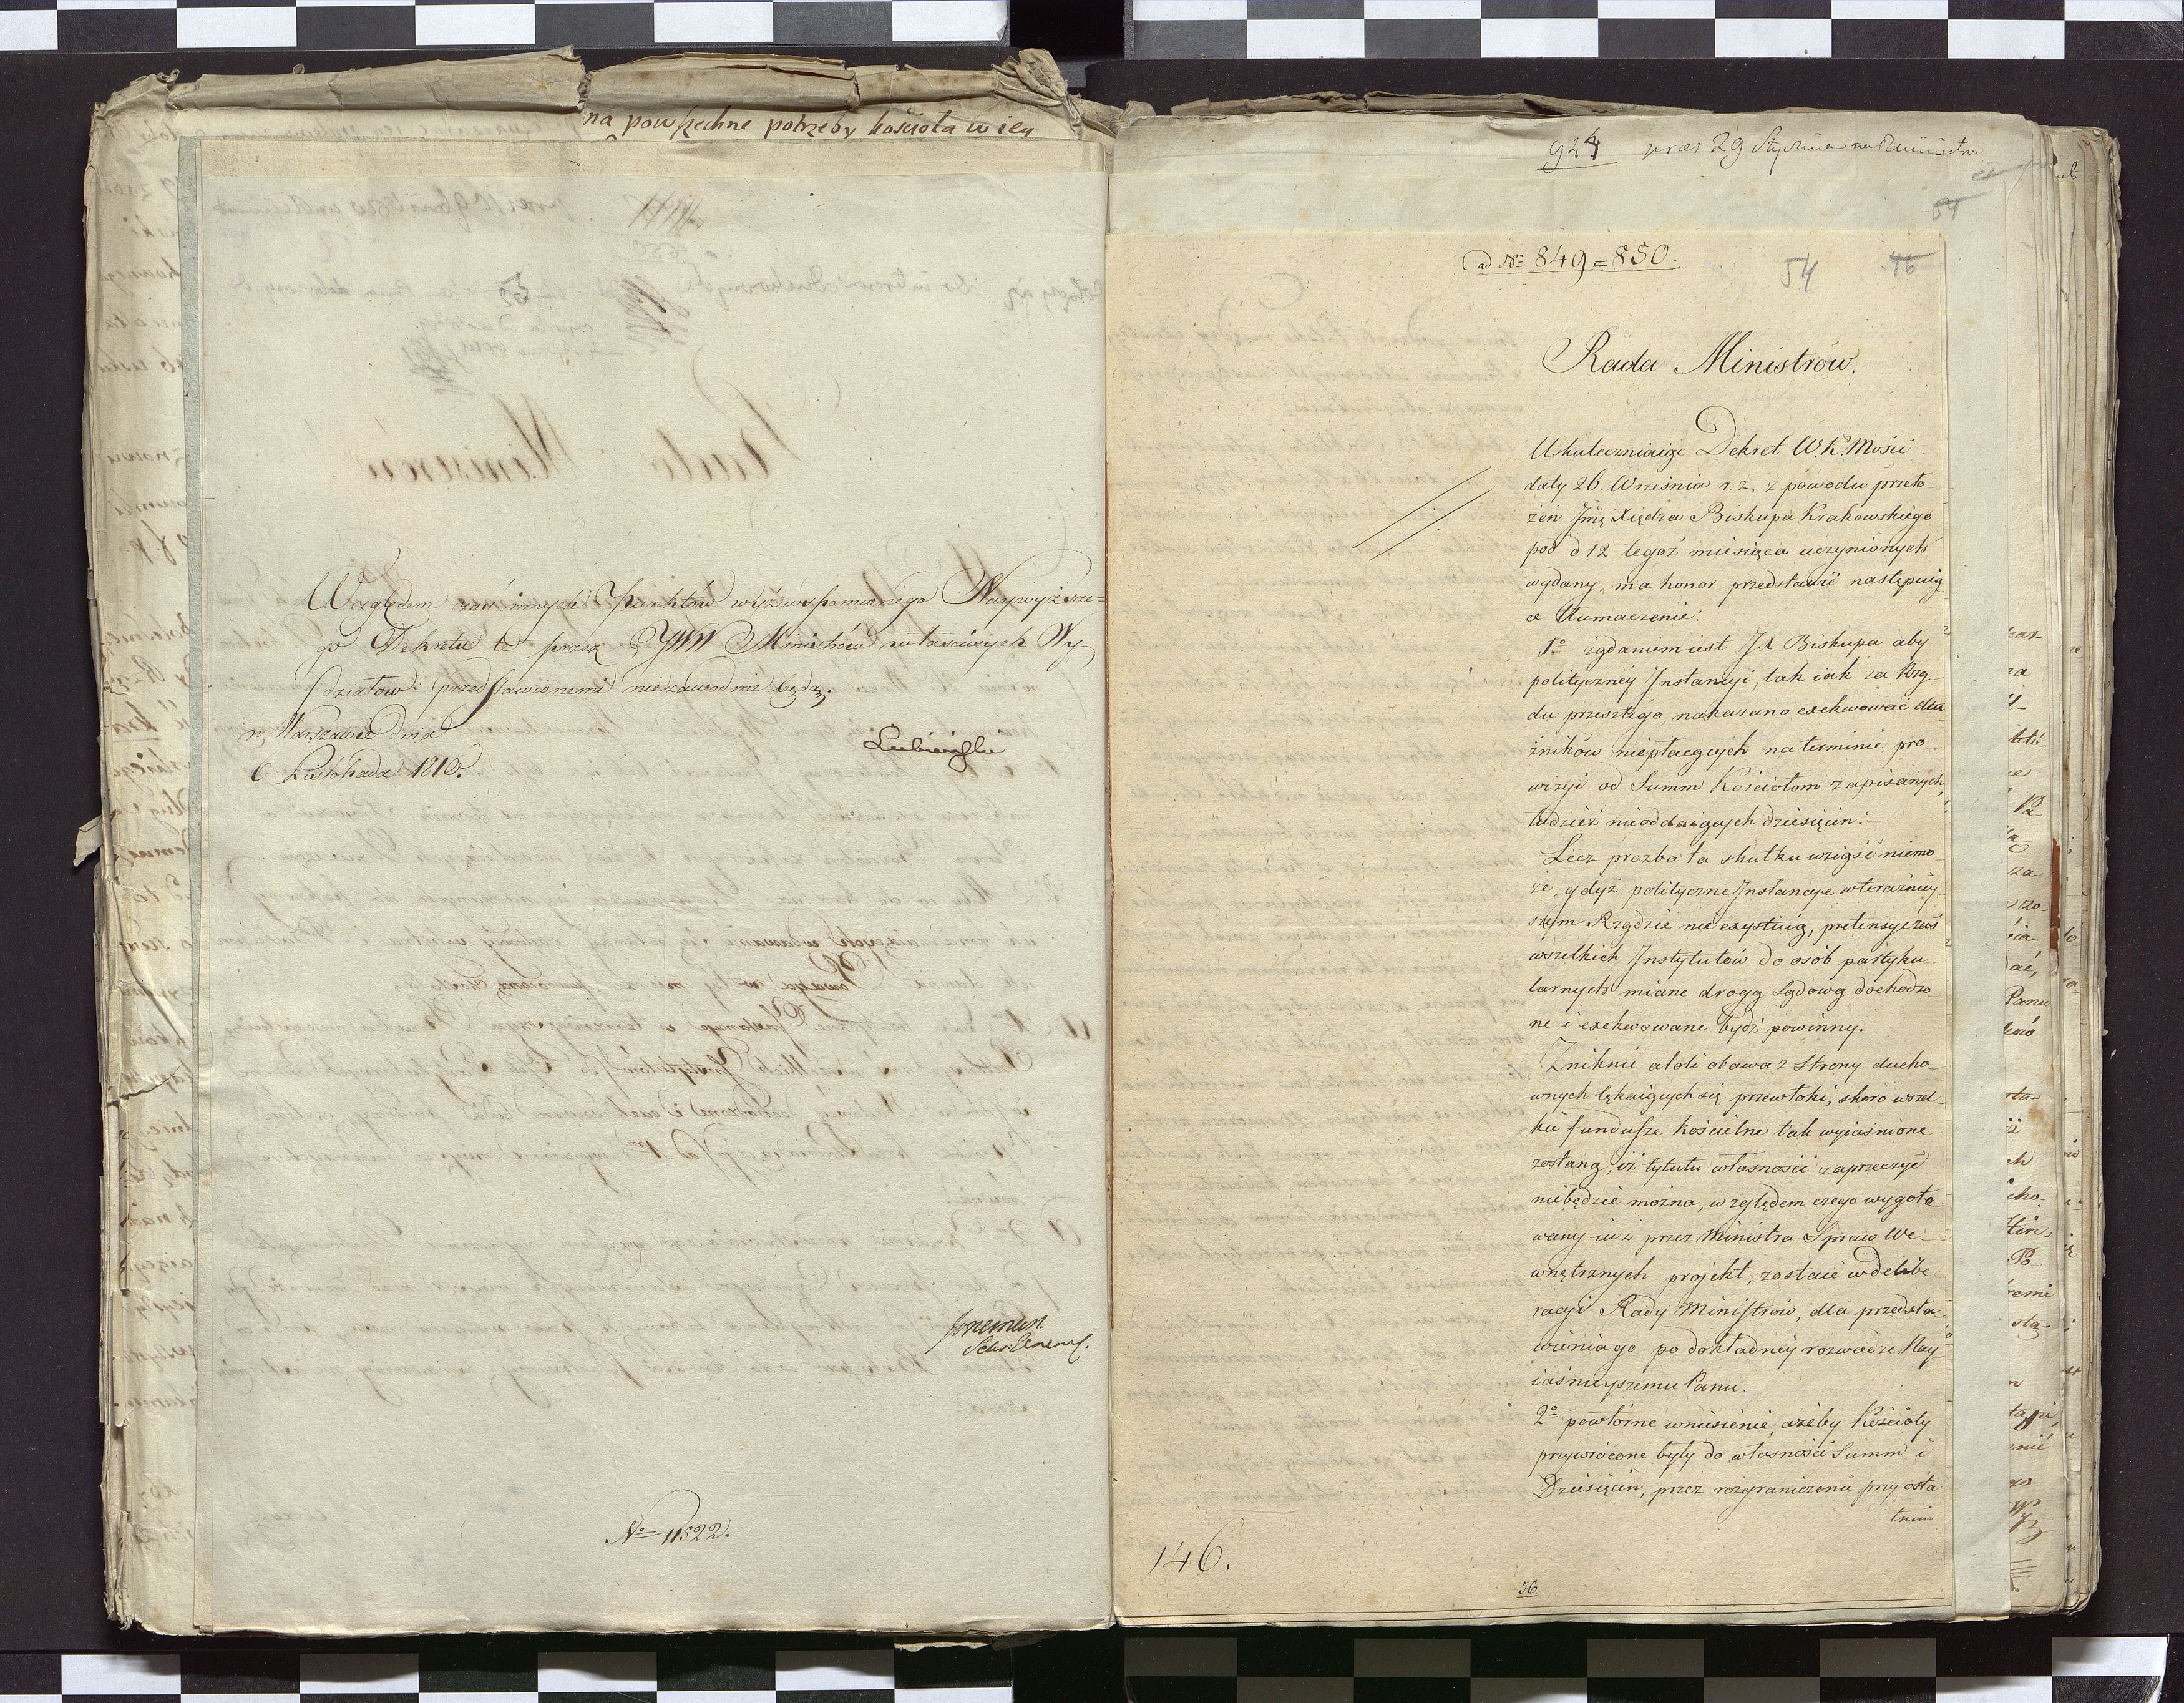 na powszechne potrzeby kościoła w ićy
Względem zaś innych Punktów wyż wspomnionego Naywyższe=
go Dekretu te przez JWW Ministrów właściwych Wy
działów przedstawionemi niezawodnie będą.
w Warszawie Dnia
6 Listopada 1810.
Łubieński
No 11522.
924 29 Stycznia
54
ad No 849=850.
54 76
Rada Ministrów.
Uskuteczniaiąc Dekret W.K.Mości
daty 26. Września r.z. z powodu przeło
żeń Jmę Xiędza Biskupa Krakowskiego
pod d 12 tegoż miesiąca uczynionych
wydany, ma honor przedstawić następuią
ce tłumaczenie:
1o żądaniem iest JX Biskupa aby
polityczney Instancyi, tak iak za Rzą-
du przeszłego nakazano exekwować dłu
żników niepłacących na terminie pro
wizyi od Summ Kościołom zapisanych,
tudzież nieoddaiących dziesięcin:-
Lecz prozba ta skutku wziąść niemo
że, gdyż polityczne Instancye w teraźniey-
szym Rządzie nie exystuią, pretensye zaś
wszelkich Instytutów do osób partyku
larnych miane drogą Sądową dochodzo
ne i exekwowane bydź powinny.
Zniknie atoli obawa z Strony ducho-
wnych lękaiących się przewłoki, skoro wszel-
kie fundusze kościelne tak wyiaśnione
zostaną, iż tytułu własności zaprzeczyć
niebędzie można, względem czego wygoto
wany iuż przez Ministra Spraw We-
wnętrznych projekt, zostaie w delibe
racyi Rady Ministrów, dla przedsta-
wienia go po dokładney rozwadze Nay
iaśnieyszemu Panu.
2o powtórne wniesienie, ażeby Kościoły
przywrócone były do własności Summ i
Dziesięcin, przez rozgraniczenie przy osta
tnim
146.
76.